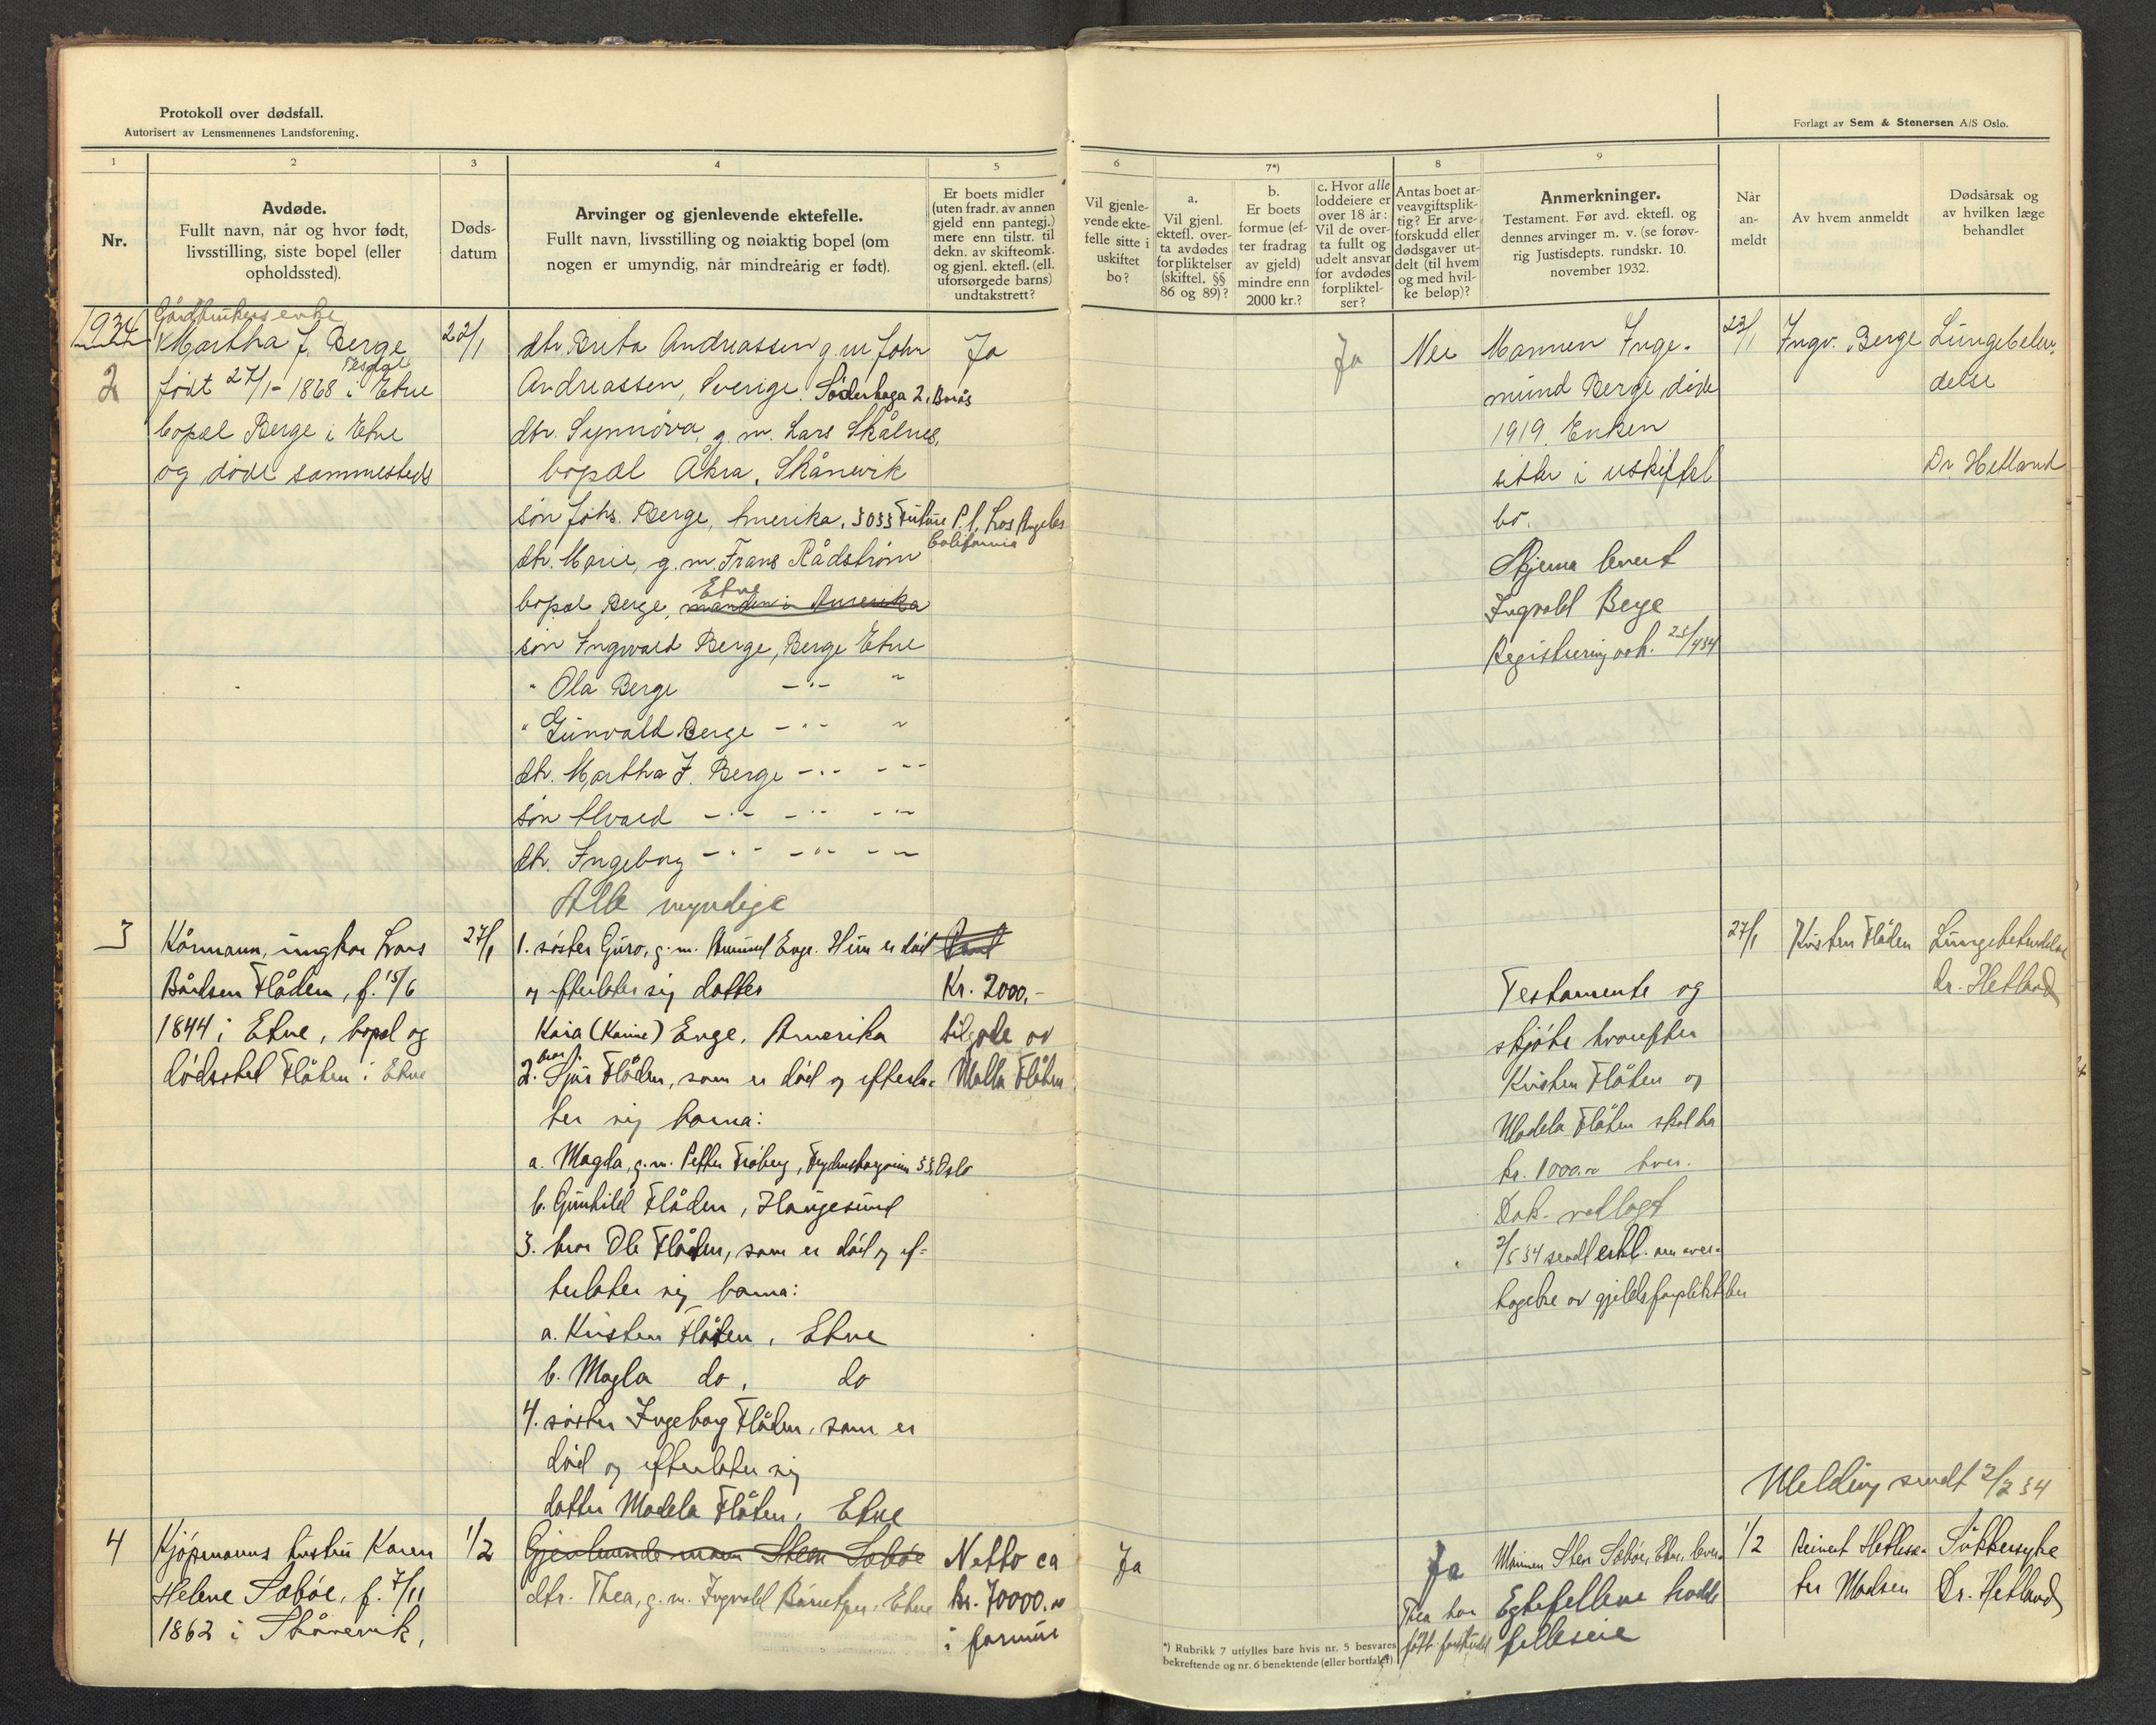 Protokoll over dødsfall.
Autorisert av Lensmennenes Landsforening.
Forlagt av Sem & Stenersen A/S Oslo.
1
Nr.
2
Avdøde.
Fullt navn, når og hvor født,
livsstilling, siste bopel (eller
opholdssted).
3
Døds-
datum
4
Arvinger og gjenlevende ektefelle.
Fullt navn, livsstilling og nøiaktig bopel (om
nogen er umyndig, når mindreårig er født).
5
Er boets midler
(uten fradr. av annen
gjeld enn pantegj.)
mere enn tilstr. til
dekn. av skifteomk.
og gjenl. ektefl. (ell.
uforsørgede barns)
undtakstrett?
6
Vil gjenle-
vende ekte-
felle sitte i
uskiftet
bo?
7*)
a.
Vil gjenl.
ektefl. over-
ta avdødes
forpliktelser
(skiftel. §§
86 og 89)?
b.
Er boets
formue (ef-
ter fradrag
av gjeld)
mindre enn
2000 kr.?
c. Hvor alle
loddeiere er
over 18 år:
Vil de over-
ta fullt og
udelt ansvar
for avdødes
forpliktel-
ser?
8
Antas boet ar-
veavgiftsplik-
tig? Er arve-
forskudd eller
dødsgaver ut-
delt (til hvem
og med hvil-
ke beløp)?
9
Anmerkninger.
Testament. Før avd. ektefl. og
dennes arvinger m. v. (se forøv-
rig Justisdepts. rundskr. 10.
november 1932.
Når
an-
meldt
Av hvem anmeldt
Dødsårsak og
av hvilken læge
behandlet
1934
2
Gårdbrukers enke
Martha J. Berge
født 27/1-1868 i Etne
bopæl Berge i Etne
og døde sammesteds
22/1
dtr. Brita Andreassen g.m John
Andreassen, Sverige. Söderhaga 2, Borås
dtr. Synnøva, g. m. Lars Skålnes,
bopæl Åkra, Skånevik
søn Johs. Berge, Amerika, 3033 Future Pl, Los Angeles
California
dtr. Marie, g. m. Frans Rådstrøm
bopæl Berge, Etne manden i Amerika
søn Ingvald Berge, Berge Etne
" Ola Berge -"- "
" Gunvald Berge -"- "
dtr. Martha I. Berge -"- -"-
søn Alvald -"- -"- -"-
dtr. Ingeborg -"- -"- -"-
Alle myndige
Ja
Ja
Nei
Mannen Inge-
mund Berge døde
1919. Enken
sitter i uskiftet
bo.
Skjema levert
Ingvald Berge
Registrering avh. 25/4 34
23/1
Ingv. Berge
Lungebeten-
delse
Dr Hetland
3
Kårmann, ungkar Lars
Bårdsen Flåden, f. 15/6
1844 i Etne, bopel og
dødssted Flåten i Etne
27/1
1. søster Guro, g. m. Amund Enge. Hun er død
og efterlater sig datter
Kaia (Karine) Enge, Amerika
2. bror Sjur Flåden, som er død og efterla-
ter sig barna:
a. Magda, g. m. Petter Frøberg, 33, Oslo
b. Gunhild Flåden, Haugesund
3. bror Ole Flåten, som er død og ef-
terlater sig barna:
a. Kristen Flåten, Etne
b. Magla do, do
4. søster Ingeborg Flåden, som er
død og efterlater sig
datter Madela Flåten, Etne
Kr. 2000,-
tilgode av
Malla Flåten
Testamente og
skjøte hvorefter
Kristen Flåten og
Madela Flåten skal ha
kr. 1000.00 hver.
Dok. vedlagt
2/5 34 sendt erkl. om over-
tagelse av gjeldsforpliktelser
27/1
Kristen Flåden
Lungebetendelse
dr. Hetland
Melding sendt 2/2 34
4
Kjøpmanns hustru Karen
Helene Sæbøe, f. 7/11
1862 i Skånevik,
1/2
Gjenlevende mann Sten Sæbøe
dtr. Thea, g. m. Ingvald Børretzen, Etne
Netto ca
kr. 70000.00
i formue
Ja
Ja
Thea har
fått forskudd
Mannen Sten Sæbøe, Etne, lever.
Egtefellene hadde
felleseie
1/2
Reinert Hetlese-
ter Madsen
Sukkersyke
Dr. Hetland
*) Rubrikk 7 utfylles bare hvis nr. 5 besvares
bekreftende og nr. 6 benektende (eller bortfalt).